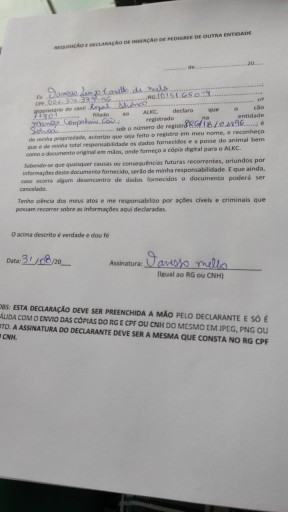 REQUISIÇÃO E DECLARAÇÃO DE INSERÇÃO DE PEDIGREE DE OUTRA ENTIDADE
de 20
Eu
CPF RG
proprietário do canil nº
filiado ao ALKC, declaro que o cão
registrado na entidade
sob o número de registro é
de minha propriedade, autorizo que seja feito o registro em meu nome, e reconheço
que é de minha total responsabilidade os dados fornecidos e a posse do animal bem
como o documento original em mãos, onde forneço a cópia digital para o ALKC.
Sabendo-se que quaisquer causas ou consequências futuras recorrentes, oriundos por
informações deste documento fornecido, serão de minha responsabilidade. E que ainda,
caso ocorra algum desencontro de dados fornecidos o documento poderá ser
cancelado.
Tenho ciência dos meus atos e me responsabilizo por ações cíveis e criminais que
possam recorrer sobre as informações aqui declaradas.
O acima descrito é verdade e dou fé
Data: 31/08/20__ Assinatura: mello
(Igual ao RG ou CNH)
OBS: ESTA DECLARAÇÃO DEVE SER PREENCHIDA A MÃO PELO DECLARANTE E SÓ É
ÁLIDA COM O ENVIO DAS CÓPIAS DO RG E CPF OU CNH DO MESMO EM JPEG, PNG OU
ITO. A ASSINATURA DO DECLARANTE DEVE SER A MESMA QUE CONSTA NO RG CPF
CNH.